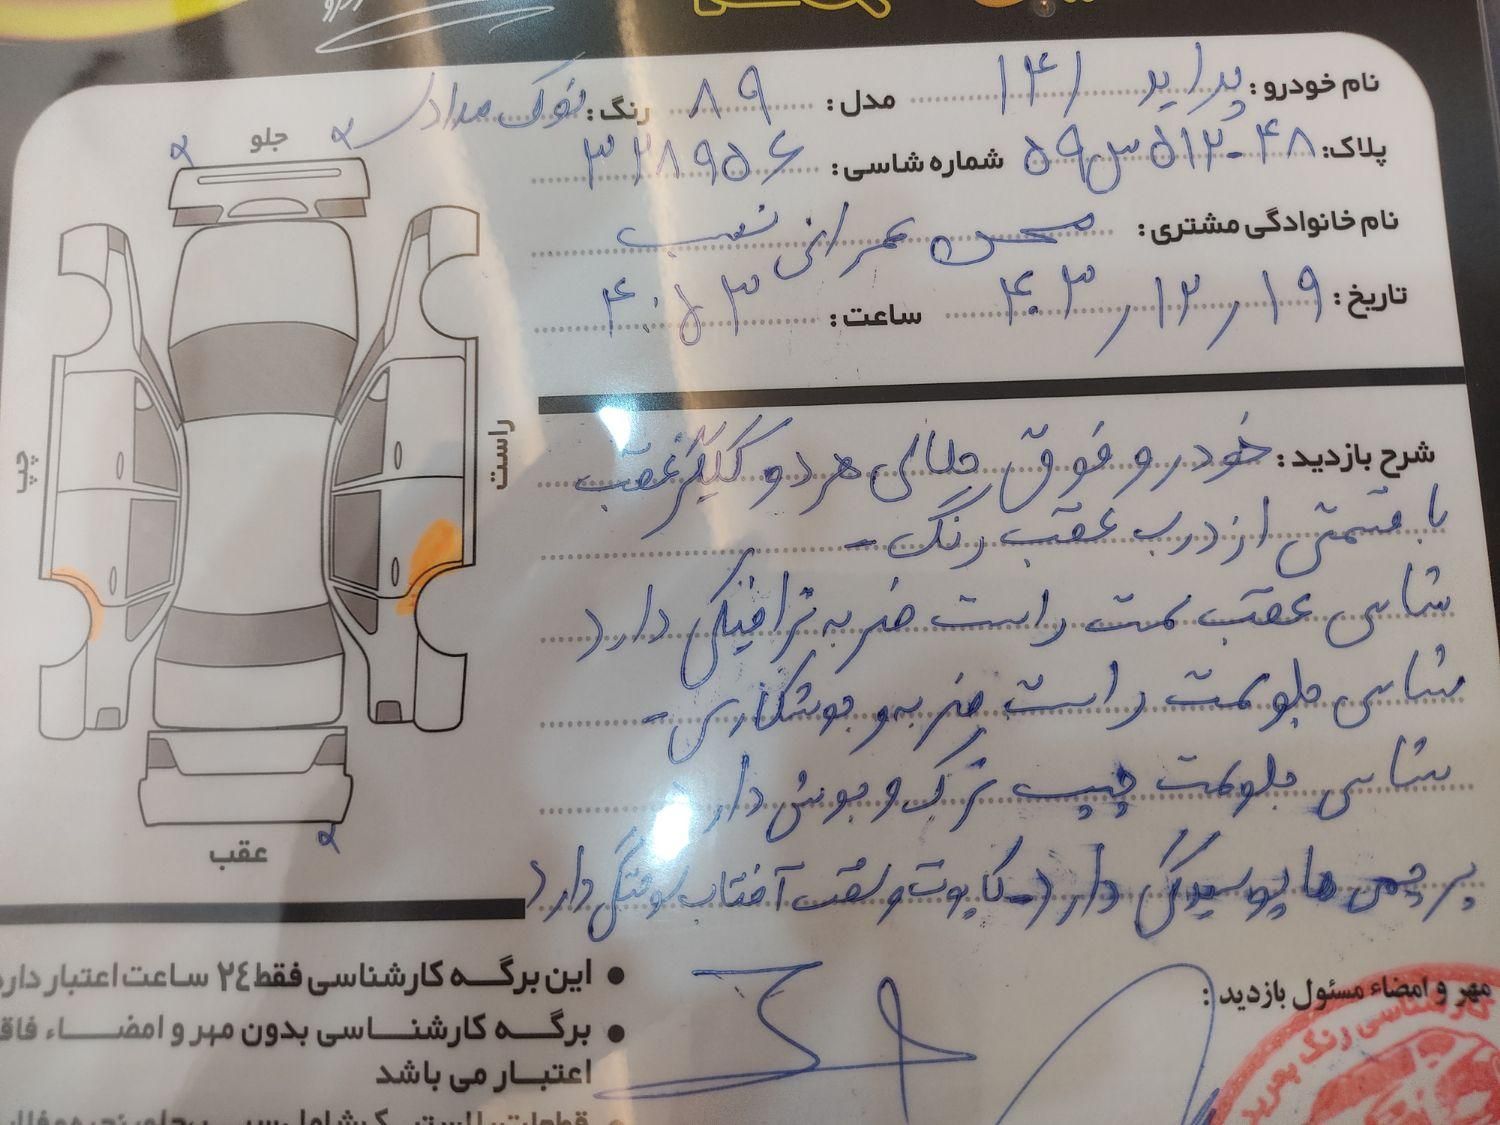 نام خودرو: پراید ۱۴۱ مدل: ۸۹ رنگ: نوک مدادی
پلاک: ۵۹ س ۵۱۲-۴۸ شماره شاسی: ۳۲۸۹۵۶
نام خانوادگی مشتری: محسن عمرانی نسب
تاریخ: ۱۹ / ۱۲ / ۴۰۳ ساعت: ۴:۵۳
جلو
چپ
راست
عقب
شرح بازدید: خودرو فوق جلای هر دو گلگیر عقب
با قسمتی از درب عقب رنگ -
شاسی عقب سمت راست ضربه ترافیکی دارد
شاسی جلو سمت راست ضربه و جوشکاری -
شاسی جلو سمت چپ ترک و جوش دارد
پرچمی ها پوسیدگی دارد - کاپوت و سقف آفتاب سوختگی دارد
• این برگه کارشناسی فقط ٢٤ ساعت اعتبار دارد
• برگه کارشناسی بدون مهر و امضاء فاقد
اعتبار می باشد
مهر و امضاء مسئول بازدید:
کارشناسی رنگ